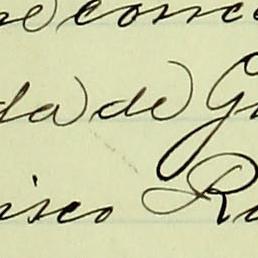 e conce
da de G
isco Ro